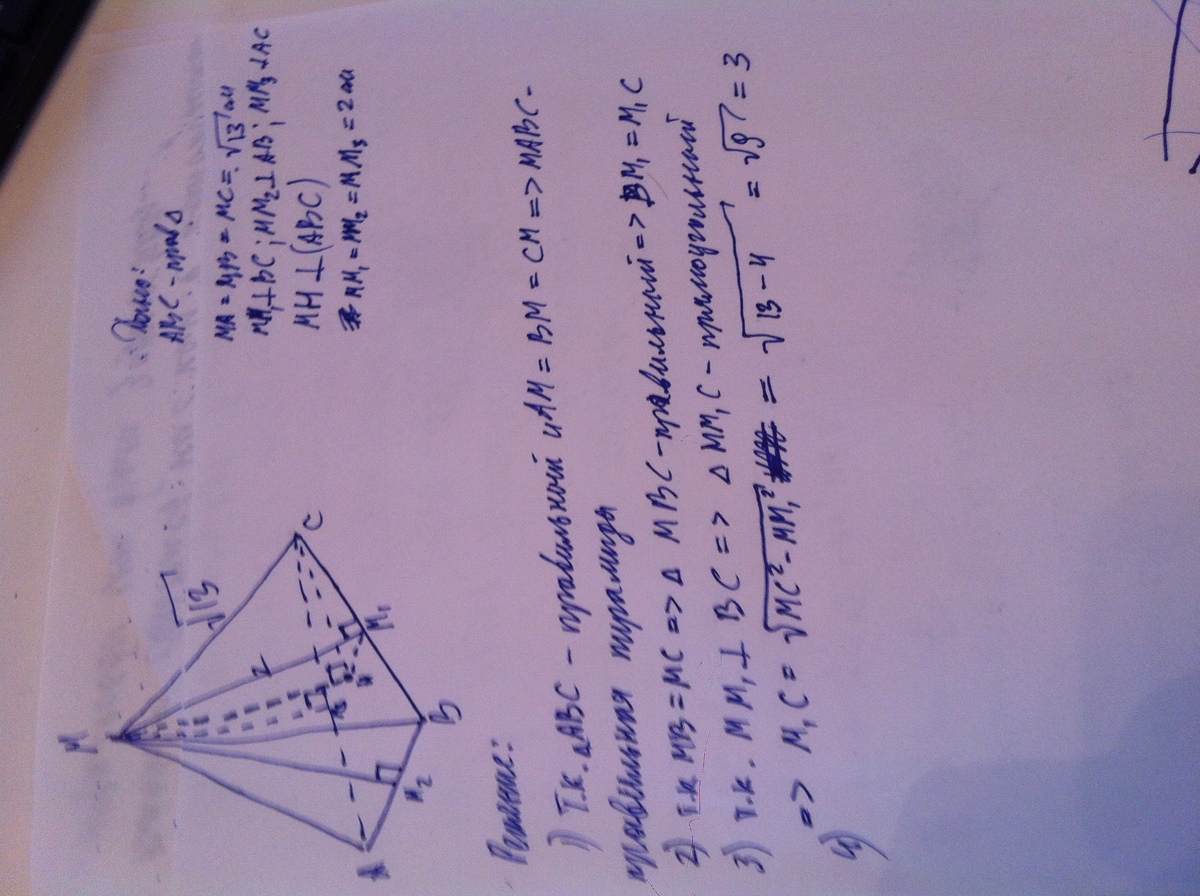 Дано:
ABC - прав Δ
MA = MB = MC = √13 см
MM₁⊥BC; MM₂⊥AB; MM₃⊥AC
MH ⊥ (ABC)
MM₁ = MM₂ = MM₃ = 2 см
M
√13
2
C
M₁
H
B
M₂
A
Решение:
1) т.к. ΔABC - правильный и AM = BM = CM => MABC -
правильная пирамида
2) т.к MB = MC => Δ MBC - правильный => BM₁ = M₁C
3) т.к. MM₁ ⊥ BC => Δ MM₁C - прямоугольный
=> M₁C = √MC² - MM₁² = √13 - 4 = √9 = 3
4)